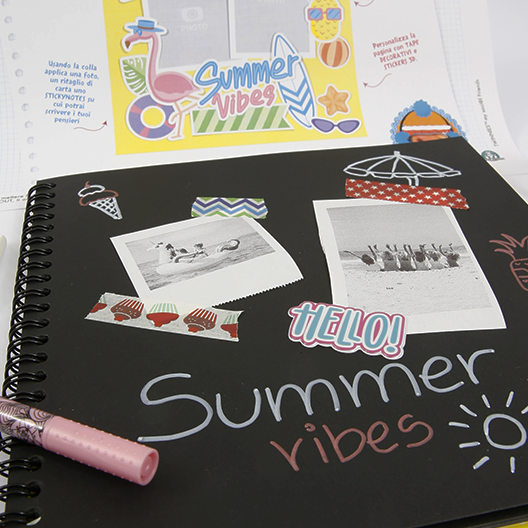 PHOTO
Usando la colla
applica una foto,
un ritaglio di
carta uno
STICKYNOTES su
cui potrai
scrivere i tuoi
pensieri
Summer
vibes
Personalizza la
pagina con TAPE
DECORATIVI e
STICKERS 3D.
HELLO!
Summer
vibes